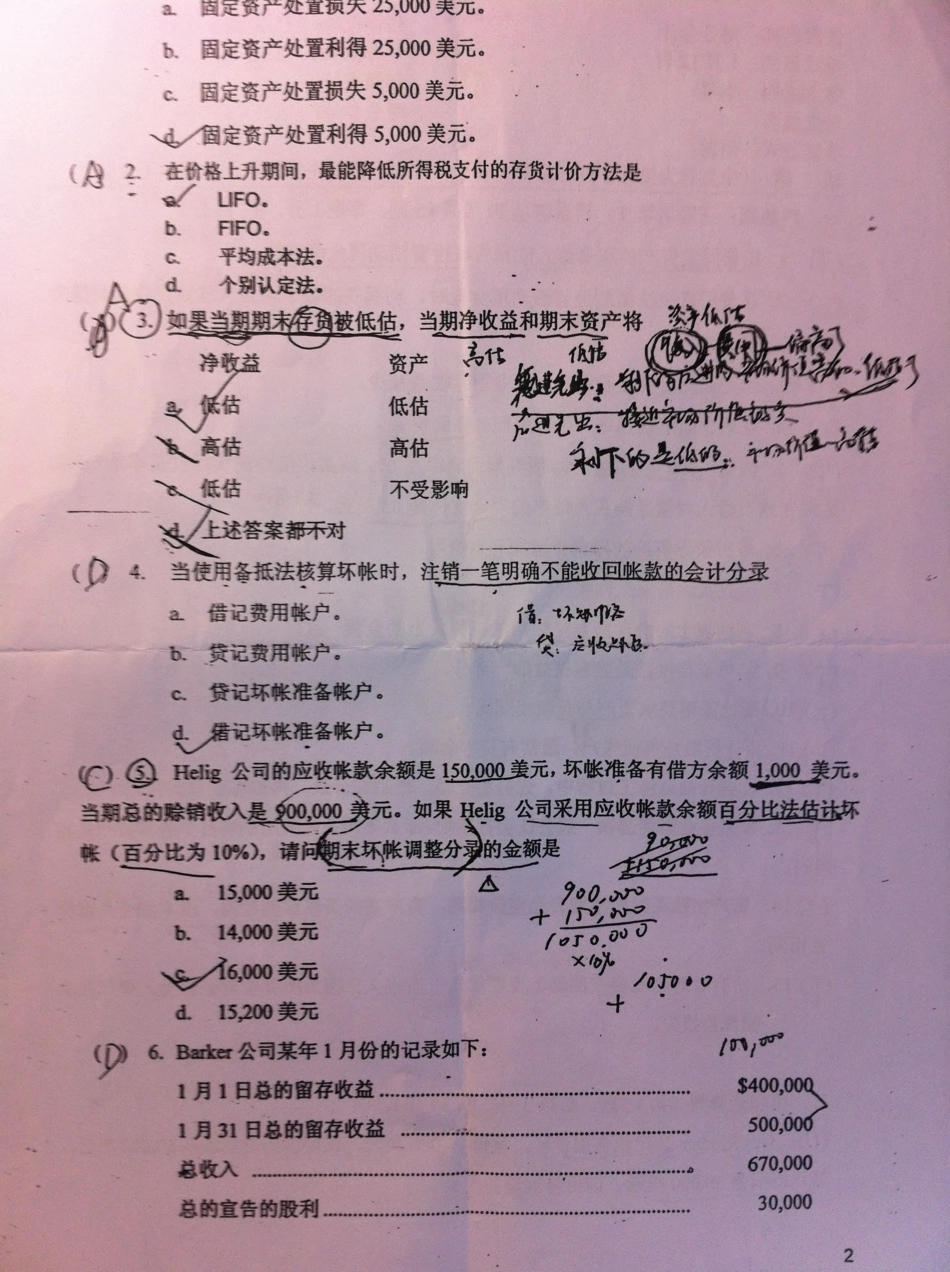 a. 固定资产处置损失 25,000 美元。
b. 固定资产处置利得 25,000 美元。
c. 固定资产处置损失 5,000 美元。
d. 固定资产处置利得 5,000 美元。
(A) 2. 在价格上升期间，最能降低所得税支付的存货计价方法是
a. LIFO。
b. FIFO。
c. 平均成本法。
d. 个别认定法。
A
( ) 3. 如果当期期末存货被低估，当期净收益和期末资产将
净收益 资产 高估 低估
a. 低估 低估
后进先出：接近市场价值
b. 高估 高估
剩下的是低的 市场价值
c. 低估 不受影响
d. 上述答案都不对
(D) 4. 当使用备抵法核算坏帐时，注销一笔明确不能收回帐款的会计分录
a. 借记费用帐户。
借：坏
b. 贷记费用帐户。
贷：应收
c. 贷记坏帐准备帐户。
d. 借记坏帐准备帐户。
(C) 5. Helig 公司的应收帐款余额是 150,000 美元，坏帐准备有借方余额 1,000 美元。
当期总的赊销收入是 900,000 美元。如果 Helig 公司采用应收帐款余额百分比法估计坏
帐（百分比为 10%），请问期末坏帐调整分录的金额是
90,000
+150,000
a. 15,000 美元
900,000
+ 150,000
b. 14,000 美元
1050,000
×10%
c. 16,000 美元
105000
+
d. 15,200 美元
(D) 6. Barker 公司某年 1 月份的记录如下：
100,000
1 月 1 日总的留存收益 ........ $400,000
1 月 31 日总的留存收益 ........ 500,000
总收入 ........ 670,000
总的宣告的股利 ........ 30,000
2